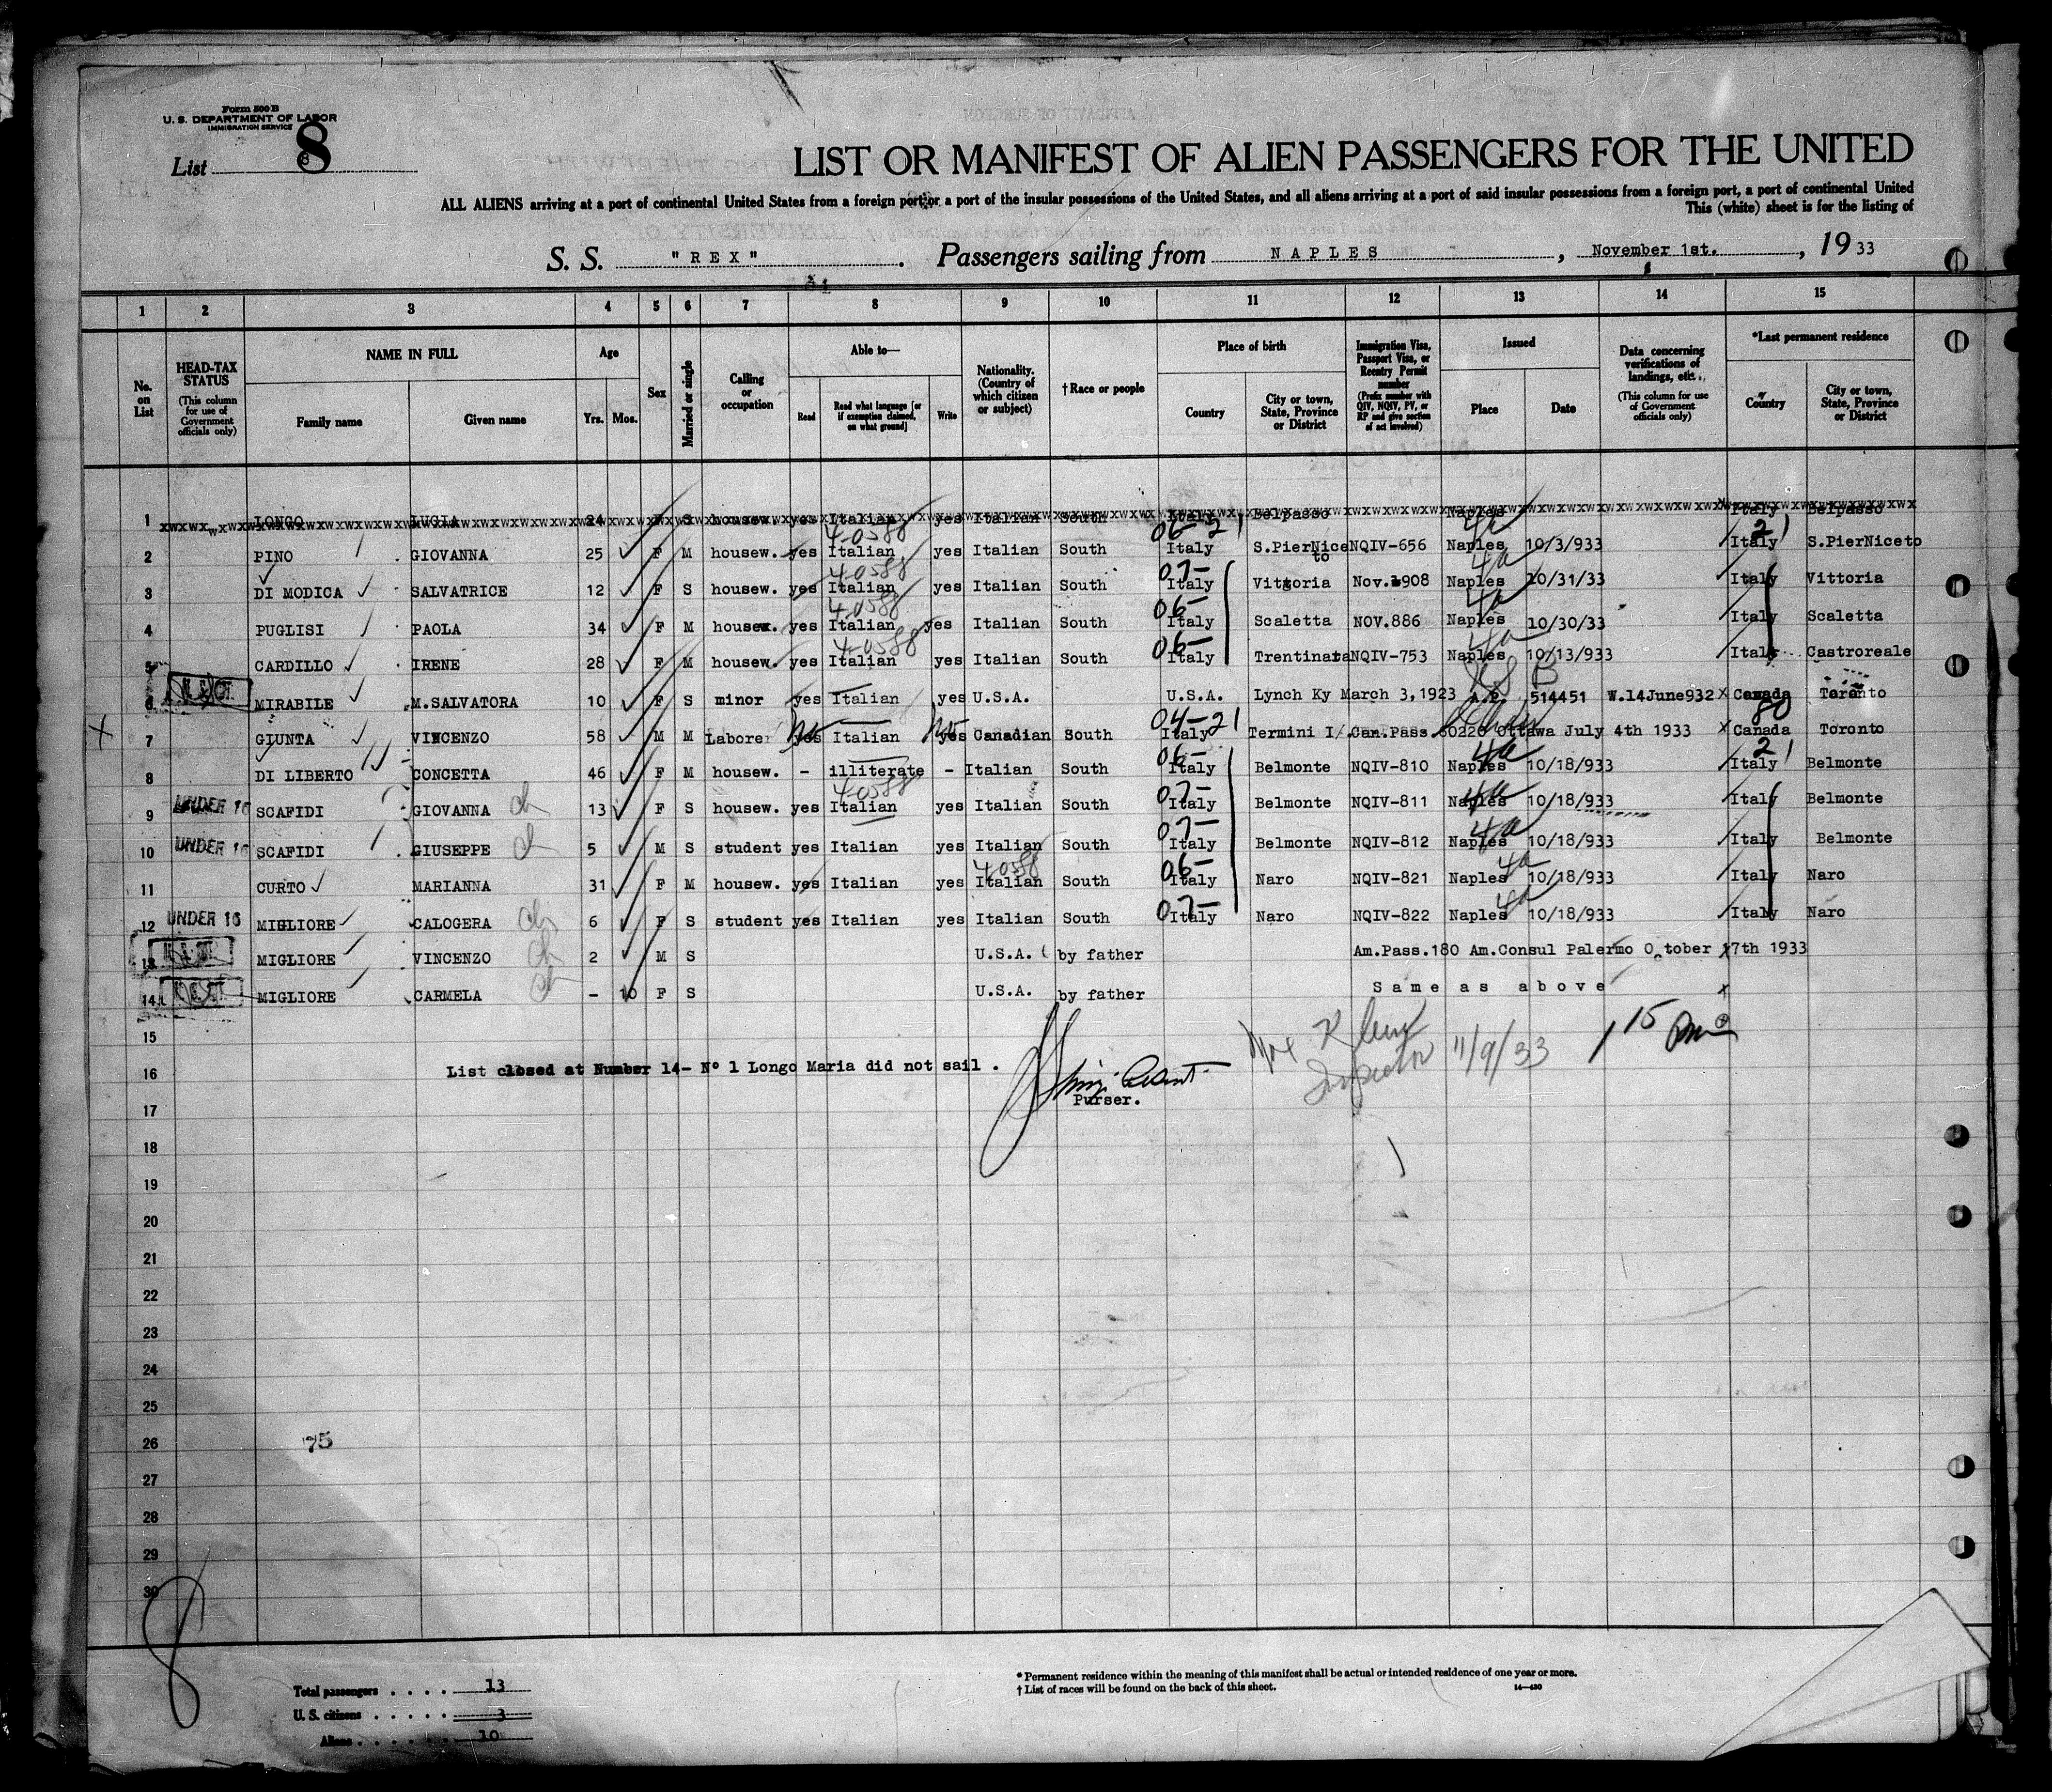 Form 500 B
U. S. DEPARTMENT OF LABOR
IMMIGRATION SERVICE
List 8
8
LIST OR MANIFEST OF ALIEN PASSENGERS FOR THE UNITED
ALL ALIENS arriving at a port of continental United States from a foreign port or a port of the insular possessions of the United States, and all aliens arriving at a port of said insular possessions from a foreign port, a port of continental United
This (white) sheet is for the listing of
S. S. "REX". Passengers sailing from NAPLES, November 1st., 1933
1 2 3 4 5 6 7 8 9 10 11 12 13 14 15
No. on List
HEAD-TAX STATUS (This column for use of Government officials only)
NAME IN FULL
Family name Given name
Age
Yrs. Mos.
Sex
Married or single
Calling or occupation
Able to—
Read Read what language [or if exemption claimed, on what ground] Write
Nationality. (Country of which citizen or subject)
† Race or people
Place of birth
Country City or town, State, Province or District
Immigration Visa, Passport Visa, or Reentry Permit number (Prefix number with QIV, NQIV, PV, or RP and give section of act involved)
Issued
Place Date
Data concerning verifications of landings, etc. (This column for use of Government officials only)
*Last permanent residence
Country City or town, State, Province or District
1 LONGO LUCIA 24 F S housew. yes Italian yes Italian South Italy Belpasso Naples Italy Belpasso
4-0588 06-21 4a 21
2 PINO GIOVANNA 25 F M housew. yes Italian yes Italian South Italy S.PierNiceto NQIV-656 Naples 10/3/933 Italy S.PierNiceto
4-0588 07- 4a
3 DI MODICA SALVATRICE 12 F S housew. yes Italian yes Italian South Italy Vittoria Nov.1908 Naples 10/31/33 Italy Vittoria
4-0588 06- 4a
4 PUGLISI PAOLA 34 F M housew. yes Italian yes Italian South Italy Scaletta NOV.886 Naples 10/30/33 Italy Scaletta
4-0588 06- 4a
5 CARDILLO IRENE 28 F M housew. yes Italian yes Italian South Italy Trentinara NQIV-753 Naples 10/13/933 Italy Castroreale
6 MIRABILE M.SALVATORA 10 F S minor yes Italian yes U.S.A. U.S.A. Lynch Ky March 3,1923 A.P. 514451 W.14June932 x Canada Toronto
no no 04-21 80
7 GIUNTA VINCENZO 58 M M Laborer yes Italian yes Canadian South Italy Termini I. Can.Pass.60226 Ottawa July 4th 1933 x Canada Toronto
06- 4a 21
8 DI LIBERTO CONCETTA 46 F M housew. - illiterate - Italian South Italy Belmonte NQIV-810 Naples 10/18/933 Italy Belmonte
4-0588 07- 4a
UNDER 16
9 SCAFIDI GIOVANNA ch 13 F S housew. yes Italian yes Italian South Italy Belmonte NQIV-811 Naples 10/18/933 Italy Belmonte
07- 4a
UNDER 16
10 SCAFIDI GIUSEPPE ch 5 M S student yes Italian yes Italian South Italy Belmonte NQIV-812 Naples 10/18/933 Italy Belmonte
4-0588 06- 4a
11 CURTO MARIANNA 31 F M housew. yes Italian yes Italian South Italy Naro NQIV-821 Naples 10/18/933 Italy Naro
07- 4a
UNDER 16
12 MIGLIORE CALOGERA ch 6 F S student yes Italian yes Italian South Italy Naro NQIV-822 Naples 10/18/933 Italy Naro
13 MIGLIORE VINCENZO ch 2 M S U.S.A. by father Am.Pass.180 Am.Consul Palermo October 17th 1933
14 MIGLIORE CARMELA ch - 10 F S U.S.A. by father Same as above x
15
Klein
Inspector 11/9/33 1 15 Pm
16 List closed at Number 14- N° 1 Longo Maria did not sail.
Purser.
17
18
19
20
21
22
23
24
25
26 75
27
28
29
30
8
Total passengers . . . . 13
U. S. citizens . . . . . 3
Aliens . . . . . . 10
* Permanent residence within the meaning of this manifest shall be actual or intended residence of one year or more.
† List of races will be found on the back of this sheet.
14—430